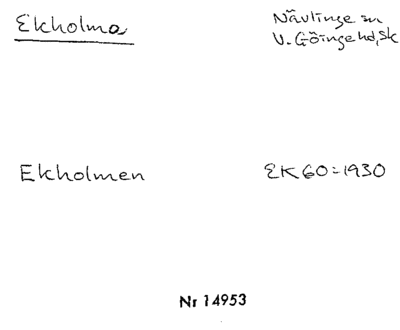 Ekholma
Nävlinge sn
V. Göinge hd, Sk
Ekholmen
EK60=1930
Nr 14953